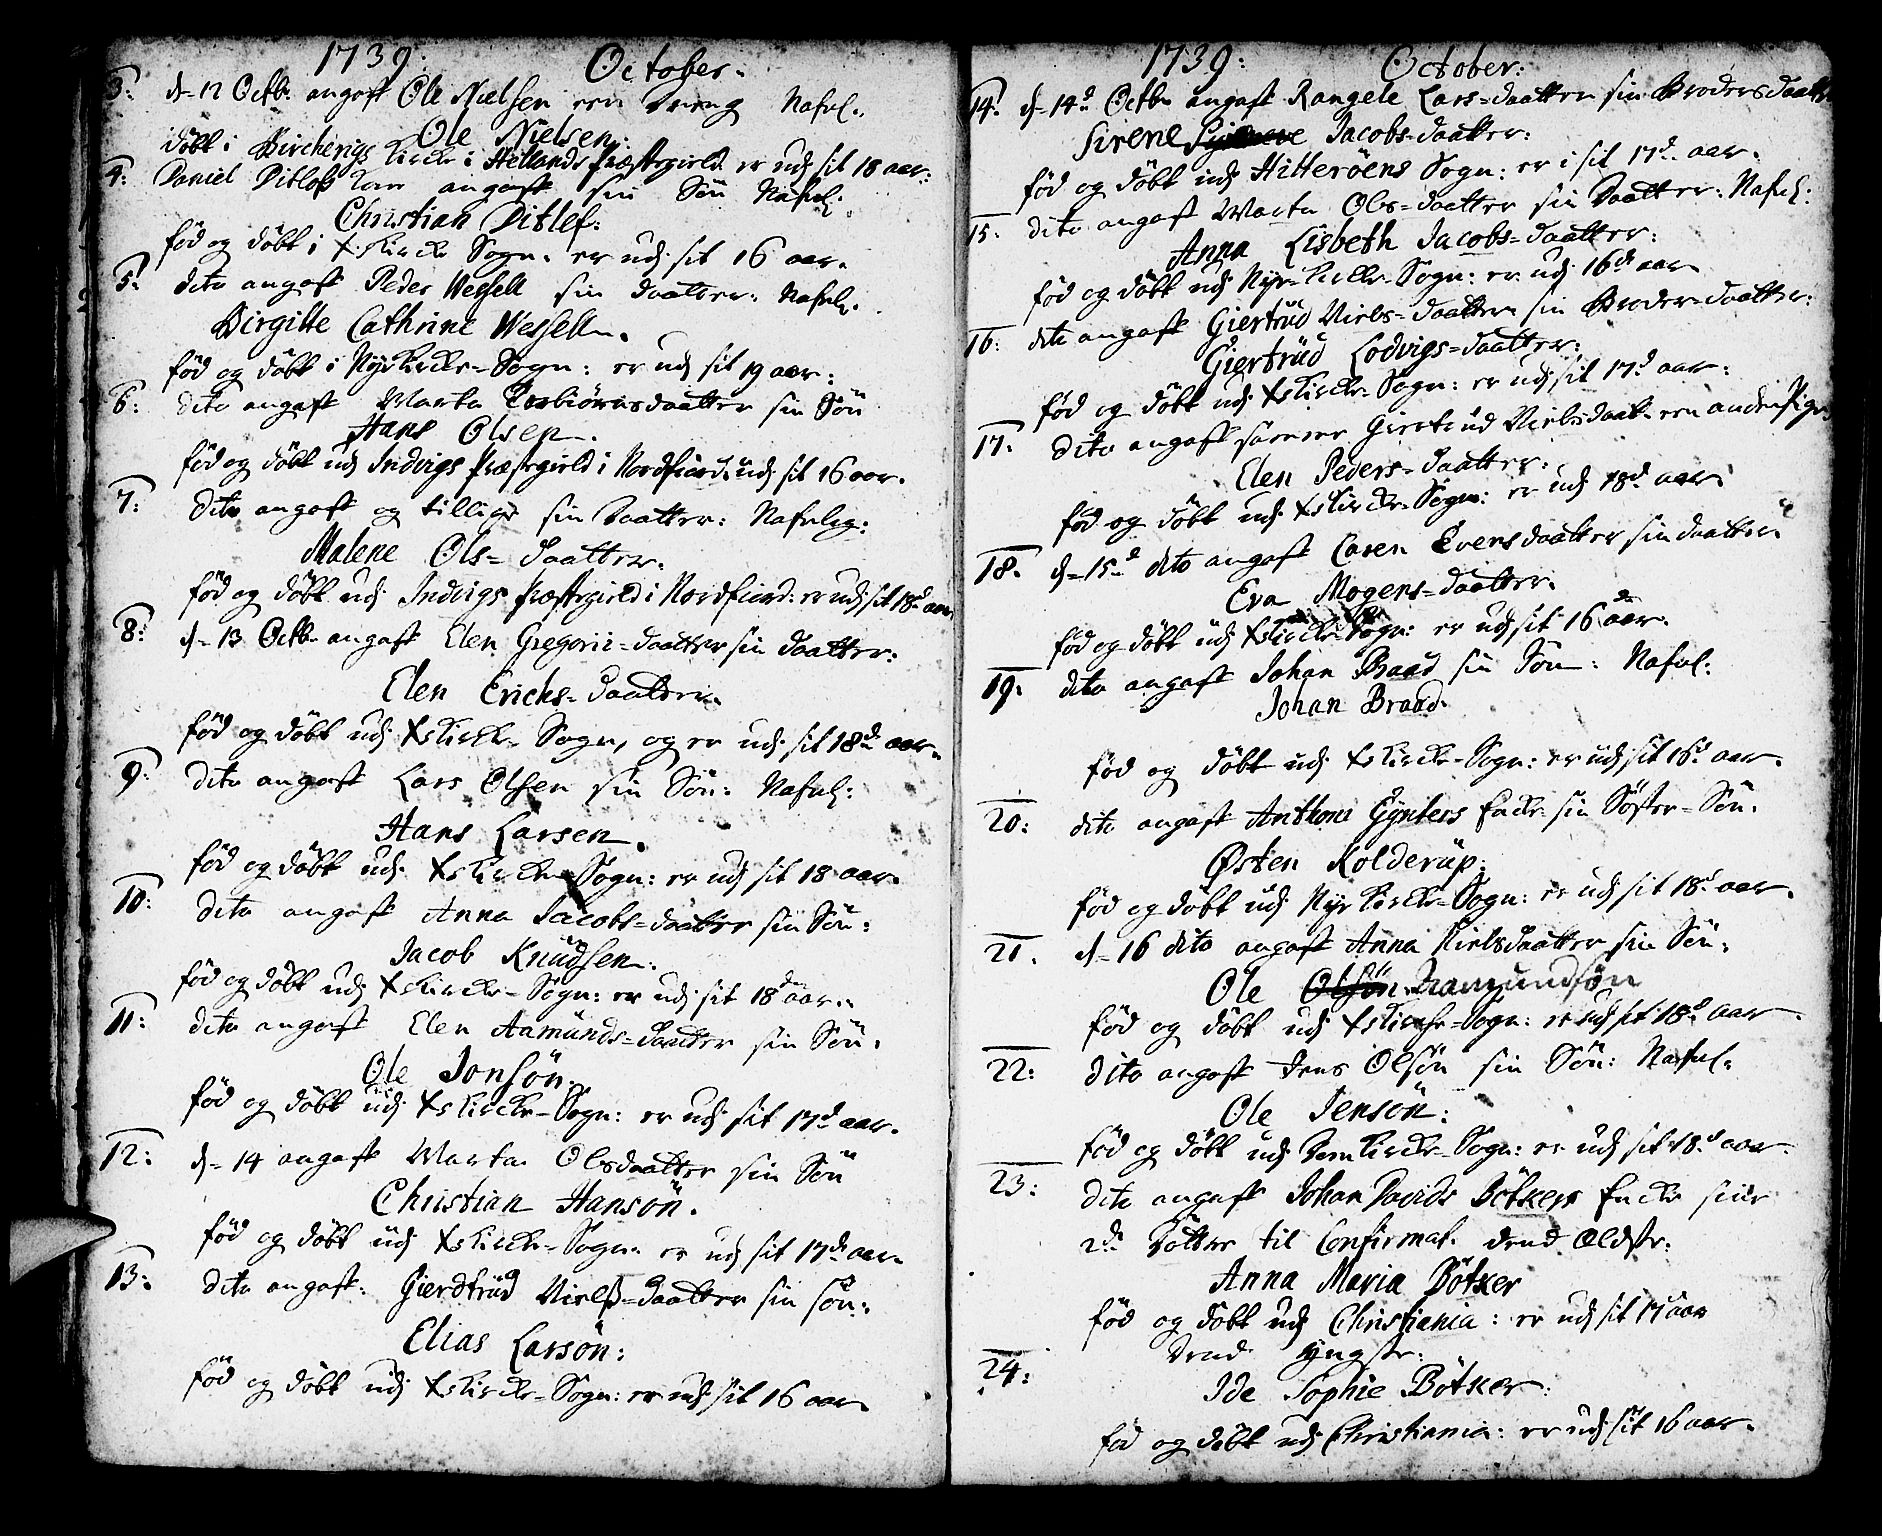 1739. October.
3. d. 12 Octb. angaf Ole Nielsen een Dreng Nafnl.
Ole Nielsen.
døbt i Bircherigs Kircke i Hetlands præstegield er udj sit 18 aar:
4. Daniel Ditlofs kone angaf sin Søn Nafnl:
Christian Ditlef.
fød og døbt i Xkircke Sogn. er udj sit 16 aar.
5. dito angaf Peder Wessell sin daatter. Nafnl.
Birgitte Cathrine Wessell.
fød og døbt i Nyekircke-Sogn: er udj sit 19 aar:
6. dito angaf Marta Torbiörnsdaatter sin Søn
Hans Olsen.
fød og døbt udj Indvigs Præstegield i Nordfiord. udj sit 16 aar.
7. dito angaf og tillige sin Daatter: Nafnlig:
Malene Ols-daatter.
fød og døbt udj Indvigs præstegield i Nordfiord: er udj sit 18d aar
8. d. 13 Octb. angaf Elen Gregorii-daatter sin daatter:
Elen Erichs-daatter.
fød og døbt udj Xkircke-Sogn, og er udj sit 18de aar.
9. dito angaf Lars Olsen sin Søn: Nafnl:
Hans Larsen.
fød og døbt udj Xkircke-Sogn: er udj sit 18 aar.
10: dito angaf Anna Jacobs-daatter sin Søn:
Jacob Knudsen.
fød og døbt udj Xkircke-Sogn: er udj sit 18d aar.
11: dito angaf Elen Aamunds-daatter sin Søn.
Ole Jonsön.
fød og døbt udj Xkircke-Sogn: er udj sit 17d aar.
12: d. 14 angaf Marta Olsdaatter sin Søn
Christian Hansön.
fød og døbt udj Xkircke-Sogn. er udj sit 17de aar.
13: dito angaf. Gierdtrud Nielß-daatter sin søn:
Elias Larsön:
fød og døbt udj Xkircke-Sogn: er udj sit 16 aar.
1739: October:
14. d. 14d Octbr angaf Rangele Lars-daatter sin Brodersdaatter
Sirene Jacobs-daatter:
fød og døbt udj Hitteröens Sogn: er i sit 17d. aar.
15. dito angaf Marta Ols-daatter sin Daatter: Nafnl:
Anna Lisbeth Jacobs-daatter:
fød og døbt udj Nye-kircke-Sogn: er udj 16de aar
16: dito angaf Giertrud Niels-daatter sin Broder-daatter:
Giertrüd Lodvigs-daatter:
fød og døbt udj Xkircke-Sogn: er udj sit 17d aar:
17: dito angaf samme Giertrud Nielsdaat. een anden Pige
Elen Peders-daatter:
fød og døbt udj Xkircke-Sogn: er udj 18d aar:
18. d. 15d dito angaf Caren Evensdaatter sin daatter.
Eva Mogens-daatter.
fød og døbt udj Xkircke-Sogn: er udj sit 16de aar.
19: dito angaf Johan Braad sin Søn: Nafnl:
Johan Braad.
fød og døbt udj Xkircke-Sogn: er udj sit 16d aar.
20: dito angaf Anthoni Gynters Encke sin Søster-Søn.
Østen Kolderüp.
fød og døbt udj Nye Kircke-Sogn: er udj sit 18d aar.
21. d. 16 dito angaf Anna Nielsdaatter sin Søn:
Ole Olsön Aamundsön
fød og døbt udj Xkircke-Sogn: er udj sit 18d aar.
22: dito angaf Jens Olsön sin Søn: Nafnl:
Ole Jensön:
fød og døbt udj Domkircke-Sogn: er udj sit 18d aar.
23: dito angaf Johan Davids Bötkers Encke sine
2de Døttre til Confirmat. dend Ældste:
Anna Maria Bötker
fød og døbt udj Christiania: er udj sit 17 aar
24: Dend yngste:
Ide Sophie Bötker:
fød og døbt udj Christiania: er udj sit 16 aar.